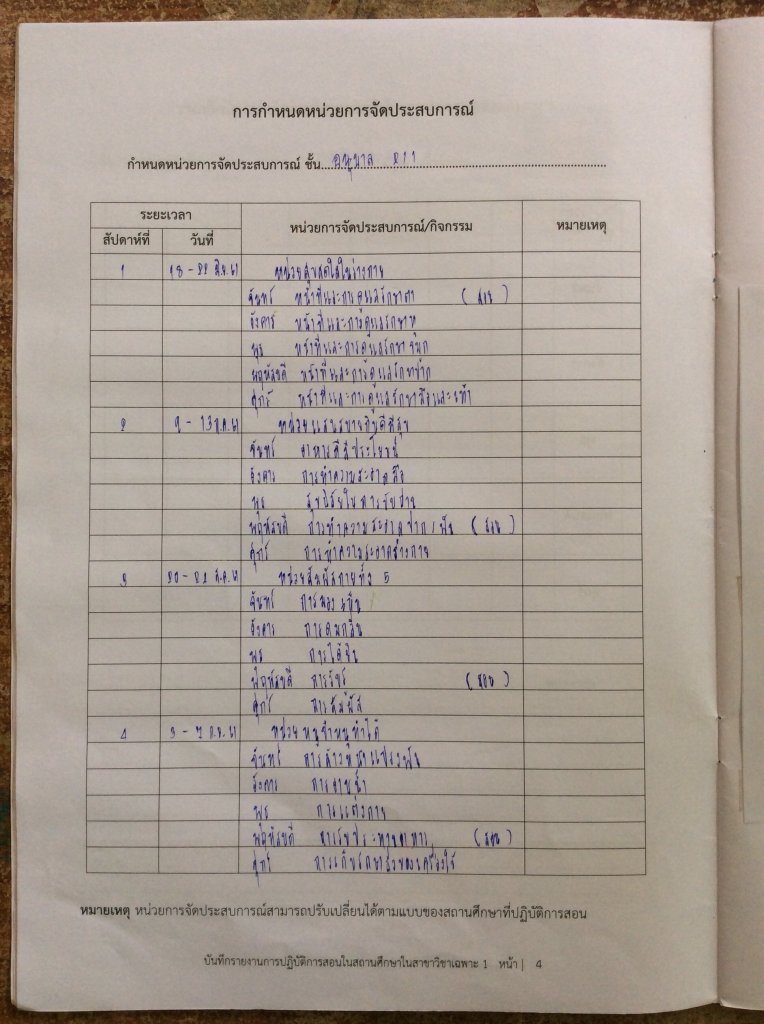 การกำหนดหน่วยการจัดประสบการณ์
กำหนดหน่วยการจัดประสบการณ์ ชั้น อนุบาล
ระยะเวลา หน่วยการจัดประสบการณ์/กิจกรรม หมายเหตุ
สัปดาห์ที่ วันที่
1 18 - 22 มิ.ย. 61 หน่วย
จันทร์ หน้าที่และการดูแลรักษาตา (สอน)
อังคาร หน้าที่และการดูแลรักษาหู
พุธ หน้าที่และการดูแลรักษาจมูก
พฤหัสบดี หน้าที่และการดูแลรักษาปาก
ศุกร์ หน้าที่และการดูแลรักษามือและเท้า
2 9 - 13 ก.ค. 61 หน่วยแสนสบายชีวีมีสุข
จันทร์ อาหารดีมีประโยชน์
อังคาร การทำความสะอาดมือ
พุธ สุขนิสัยในการขับถ่าย
พฤหัสบดี การทำความสะอาดปาก/ฟัน (สอน)
ศุกร์ การทำความสะอาดร่างกาย
3 20 - 21 ส.ค. 61 หน่วยสัมผัสกายทั้ง 5
จันทร์ การมองเห็น
อังคาร การดมกลิ่น
พุธ การได้ยิน
พฤหัสบดี การรับรู้ (สอน)
ศุกร์ การสัมผัส
4 3 - 7 ก.ย. 61 หน่วยหนูจ๋าหนูทำได้
จันทร์ การล้างหน้าแปรงฟัน
อังคาร การอาบน้ำ
พุธ การแต่งกาย
พฤหัสบดี การรับประทานอาหาร (สอน)
ศุกร์ การเก็บรักษาสิ่งของเครื่องใช้
หมายเหตุ หน่วยการจัดประสบการณ์สามารถปรับเปลี่ยนได้ตามแบบของสถานศึกษาที่ปฏิบัติการสอน
บันทึกรายงานการปฏิบัติการสอนในสถานศึกษาในสาขาวิชาเฉพาะ 1 หน้า | 4